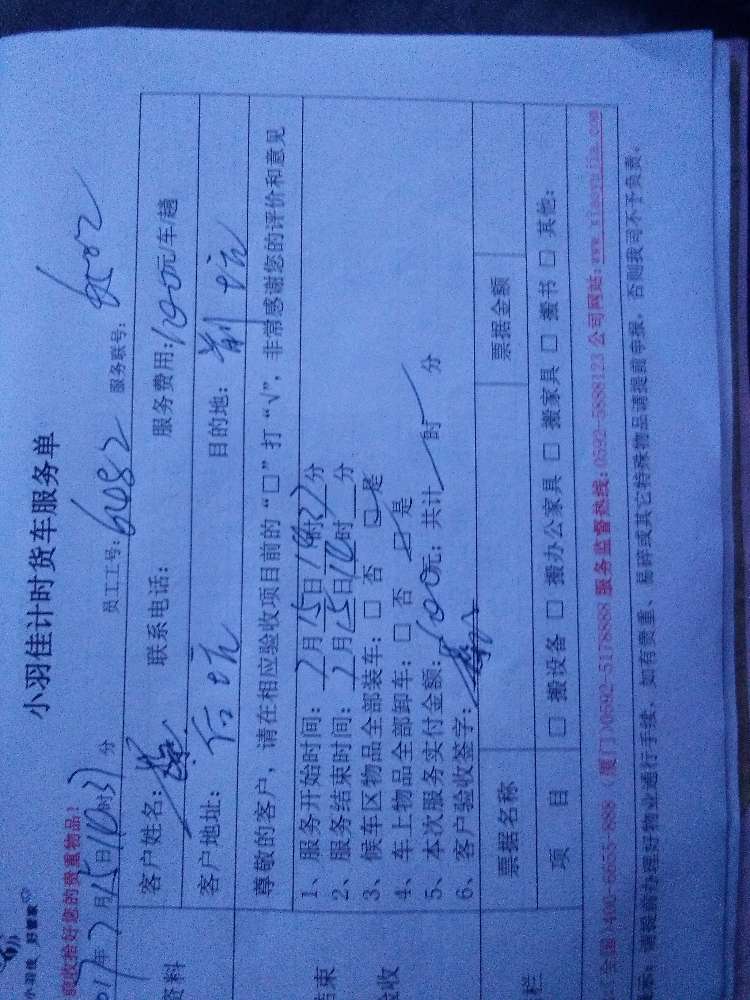 小羽佳 好管家
小羽佳计时货车服务单
前收拾好您的贵重物品！
017年 月15日 时37分 员工工号：6082 服务联号：6002
客户姓名： 联系电话： 服务费用： 元/车/趟
客户地址：后坑 目的地：前坑
尊敬的客户，请在相应验收项目前的“□”打“√”，非常感谢您的评价和意见
1、服务开始时间： 月15日 时37分
2、服务结束时间： 月15日 时 分
3、候车区物品全部装车：□ 否 □ 是
4、车上物品全部卸车：□ 否 □ 是
5、本次服务实付金额： 元；共计 时 分
6、客户验收签字：
资料
结束
验收
栏
票据名称 票据金额
项 目 □ 搬设备 □ 搬办公家具 □ 搬家具 □ 搬书 □ 其他:
(全国)400-6655-888 (厦门)0592-5178888 服务监督热线:0592-5888123 公司网站:www.xiaoyujia.com
示：请提前办理好物业通行手续，如有贵重、易碎或其它特殊物品请提前申报，否则我司不予负责。